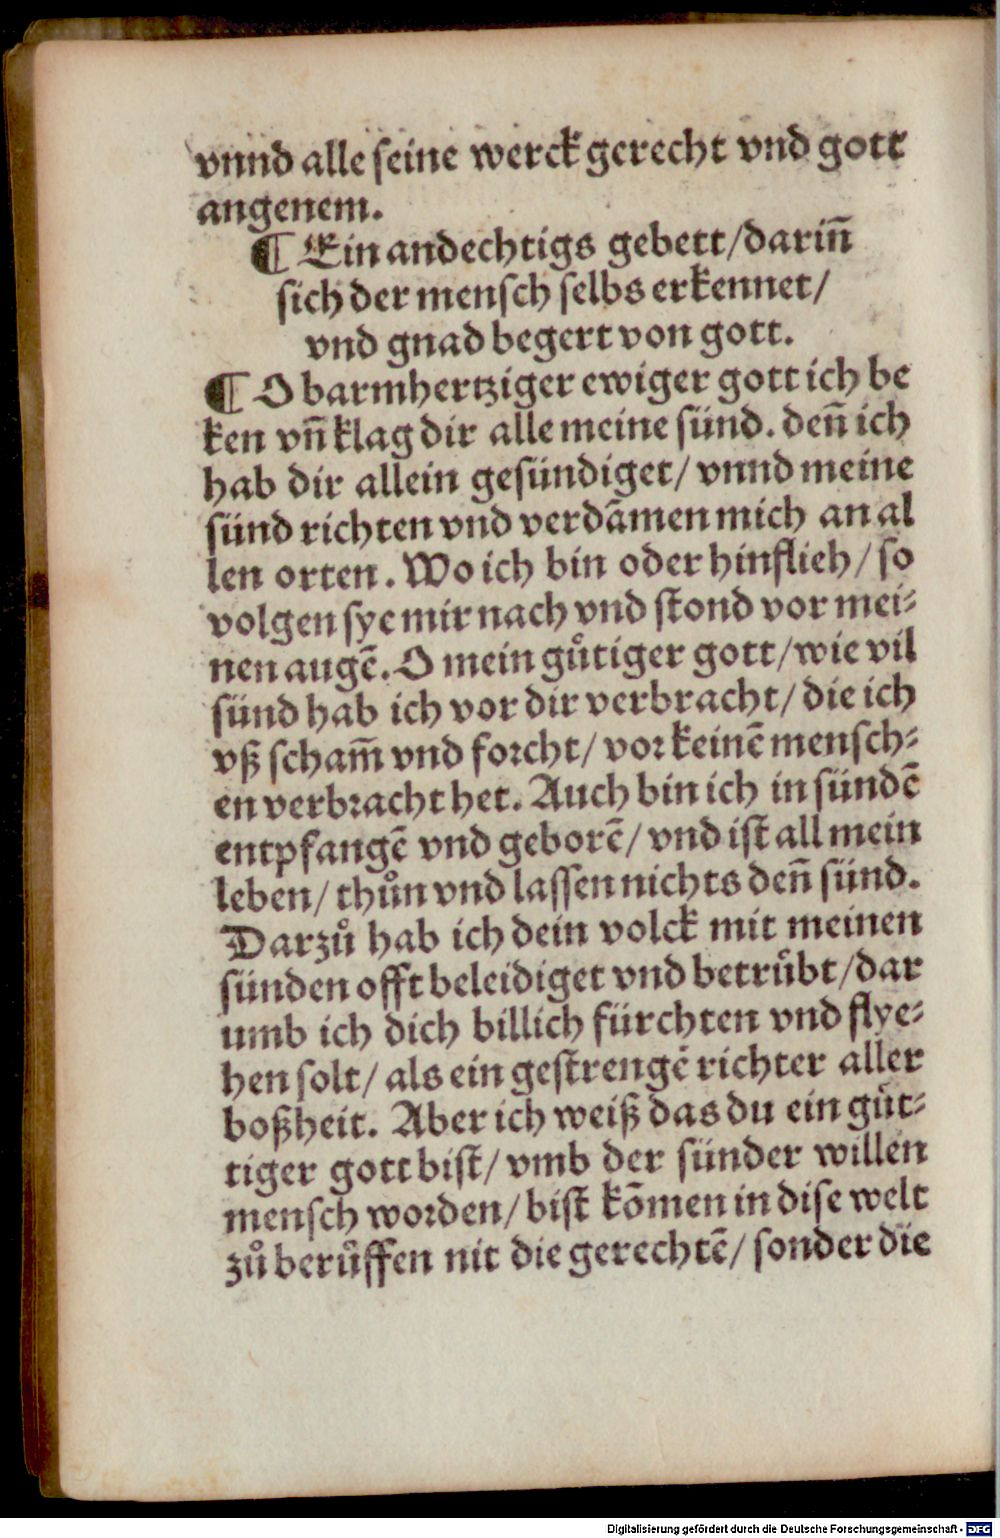 vnnd alle seine werck gerecht vnd gott
angenem.
¶ Ein andechtigs gebett/darin̄
sich der mensch selbs erkennet/
vnd gnad begert von gott.
¶ O barmhertziger ewiger gott ich be
ken vn̄ klag dir alle meine sünd. den̄ ich
hab dir allein gesündiget/ vnnd meine
sünd richten vnd verdāmen mich an al
len orten. Wo ich bin oder hinflieh/ so
volgen sye mir nach vnd stond vor mei-
nen augē. O mein gůtiger gott/wie vil
sünd hab ich vor dir verbracht/ die ich
vß scham̄ vnd forcht/ vor keinē mensch-
en verbracht het. Auch bin ich in sündē
entpfangē vnd geborē/ vnd ist all mein
leben/ thůn vnd lassen nichts den̄ sünd.
Darzů hab ich dein volck mit meinen
sünden offt beleidiget vnd betrůbt/dar
umb ich dich billich fürchten vnd flye-
hen solt/ als ein gestrengē richter aller
boßheit. Aber ich weiß das du ein gůt-
tiger gott bist/ vmb der sünder willen
mensch worden/ bist kōmen in dise welt
zů berůffen nit die gerechtē/ sonder die
Digitalisierung gefördert durch die Deutsche Forschungsgemeinschaft - DFG